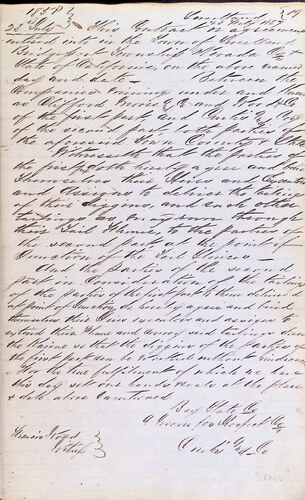 1858
25 July This Contract or agreement
entered into in the Town of
Bridgeport Township Nevada Co
State of California on the above named
day and date – Between the
Companies mining under and known
as Clifford & Co and & Co
of the first part and & Co
of the second part both parties of
the aforesaid Town County & State
Witnesseth that the parties of
the first part hereby agree and bind
themselves their Heirs and
and Assigns to deliver the tailings
of their diggins, and such other
tailings as may run through
their Tail Flumes to the parties of
the second part at the point of
Junction of the Tail Sluices –
And the parties of the second
part in Consideration of the tailings
of the parties of the first part to them delivered
at point of Junction do hereby agree and bind
themselves their executors and assigns to
extend their Flume and convey said tailings down
the Ravine so that the diggins of the parties of
the first part can be worked without hindrance
For the true fulfilment of which we have
this day set our hands seals at the place
& date above mentioned
Bay State Co
& Co
& Co
Francis